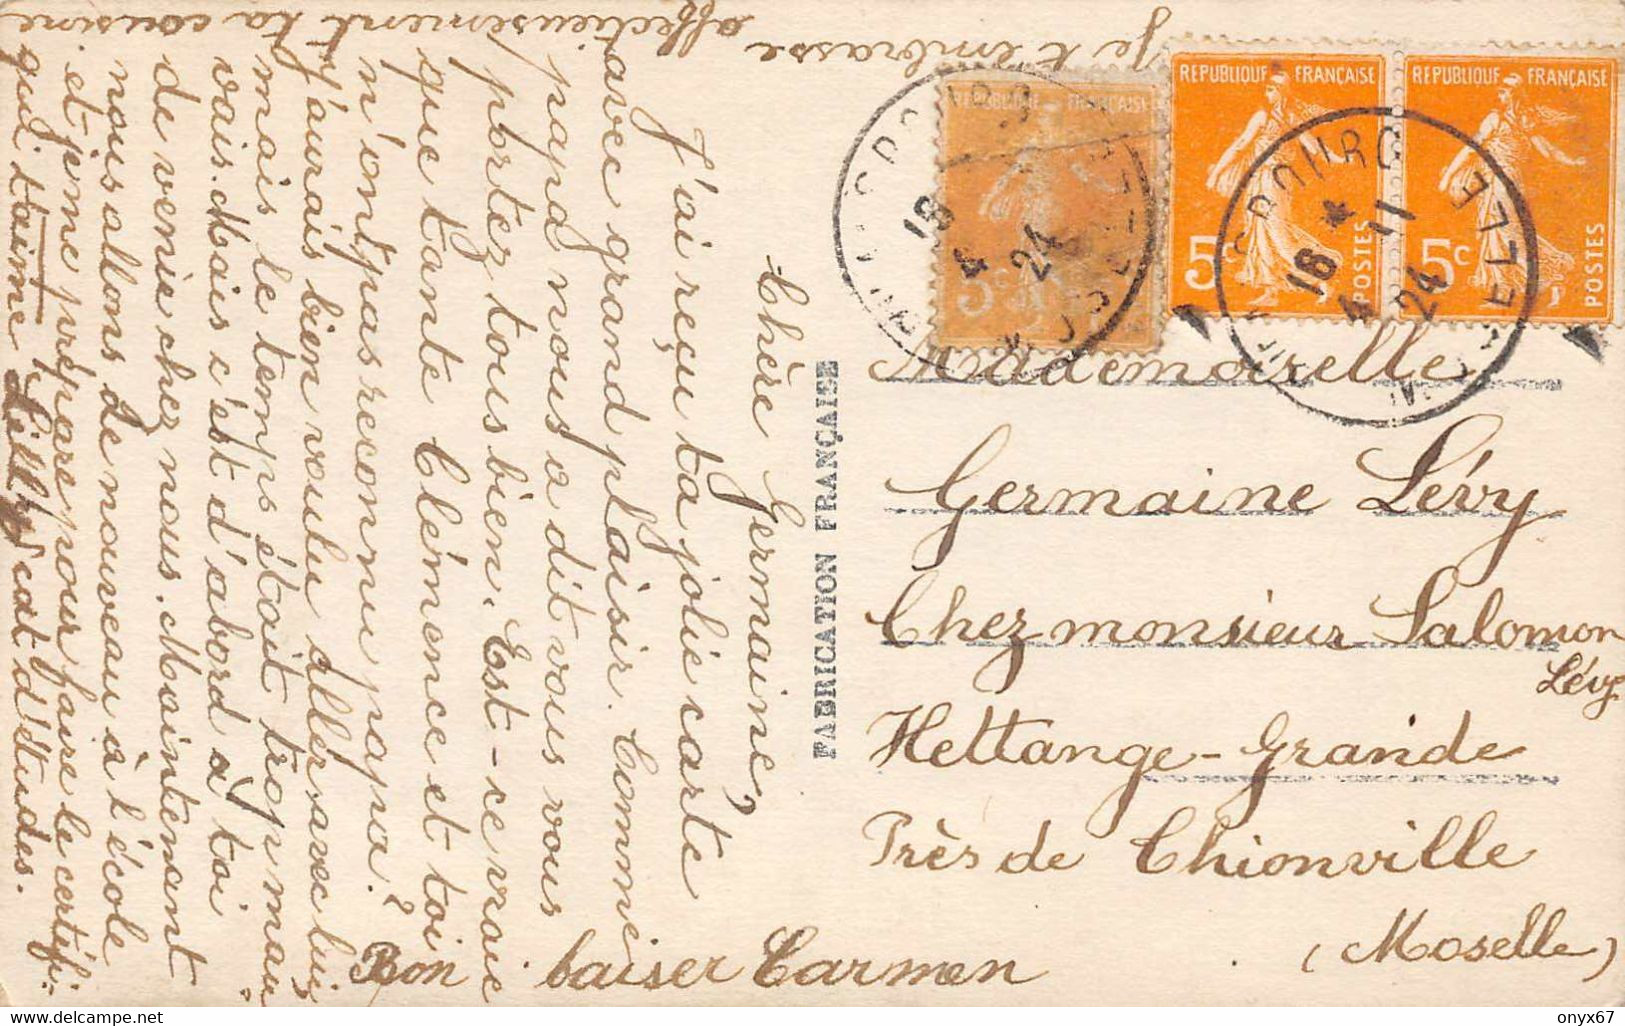 Chère Germaine,
J'ai reçu ta jolie carte
avec grand plaisir. Comme
papa nous a dit vous
portez tous bien. Est-ce vrai
que tante Clémence et toi
n'ont pas reconnu papa?
J'aurais bien voulu aller avec lui
mais le temps était trop mau-
vais. Mais c'est d'abord à toi
de venir chez nous. Maintenant
nous allons de nouveau à l'école
et je me prépare pour faire le certifi-
cat d'études.
Je t'embrasse
affectieusement ta cousine
qui t'aime Lilly
Bon baiser Carmen
FABRICATION FRANÇAISE
REPUBLIQUE FRANÇAISE
5c
POSTES
REPUBLIQUE FRANÇAISE
5c
POSTES
FRANÇAISE
5c
18
4
24
18 *
4 11
24
Mademoiselle
Germaine Lévy
Chez monsieur Salomon
Lévy
Hettange-Grande
Près de Thionville
(Moselle)
https://www.delcampe.net
onyx67